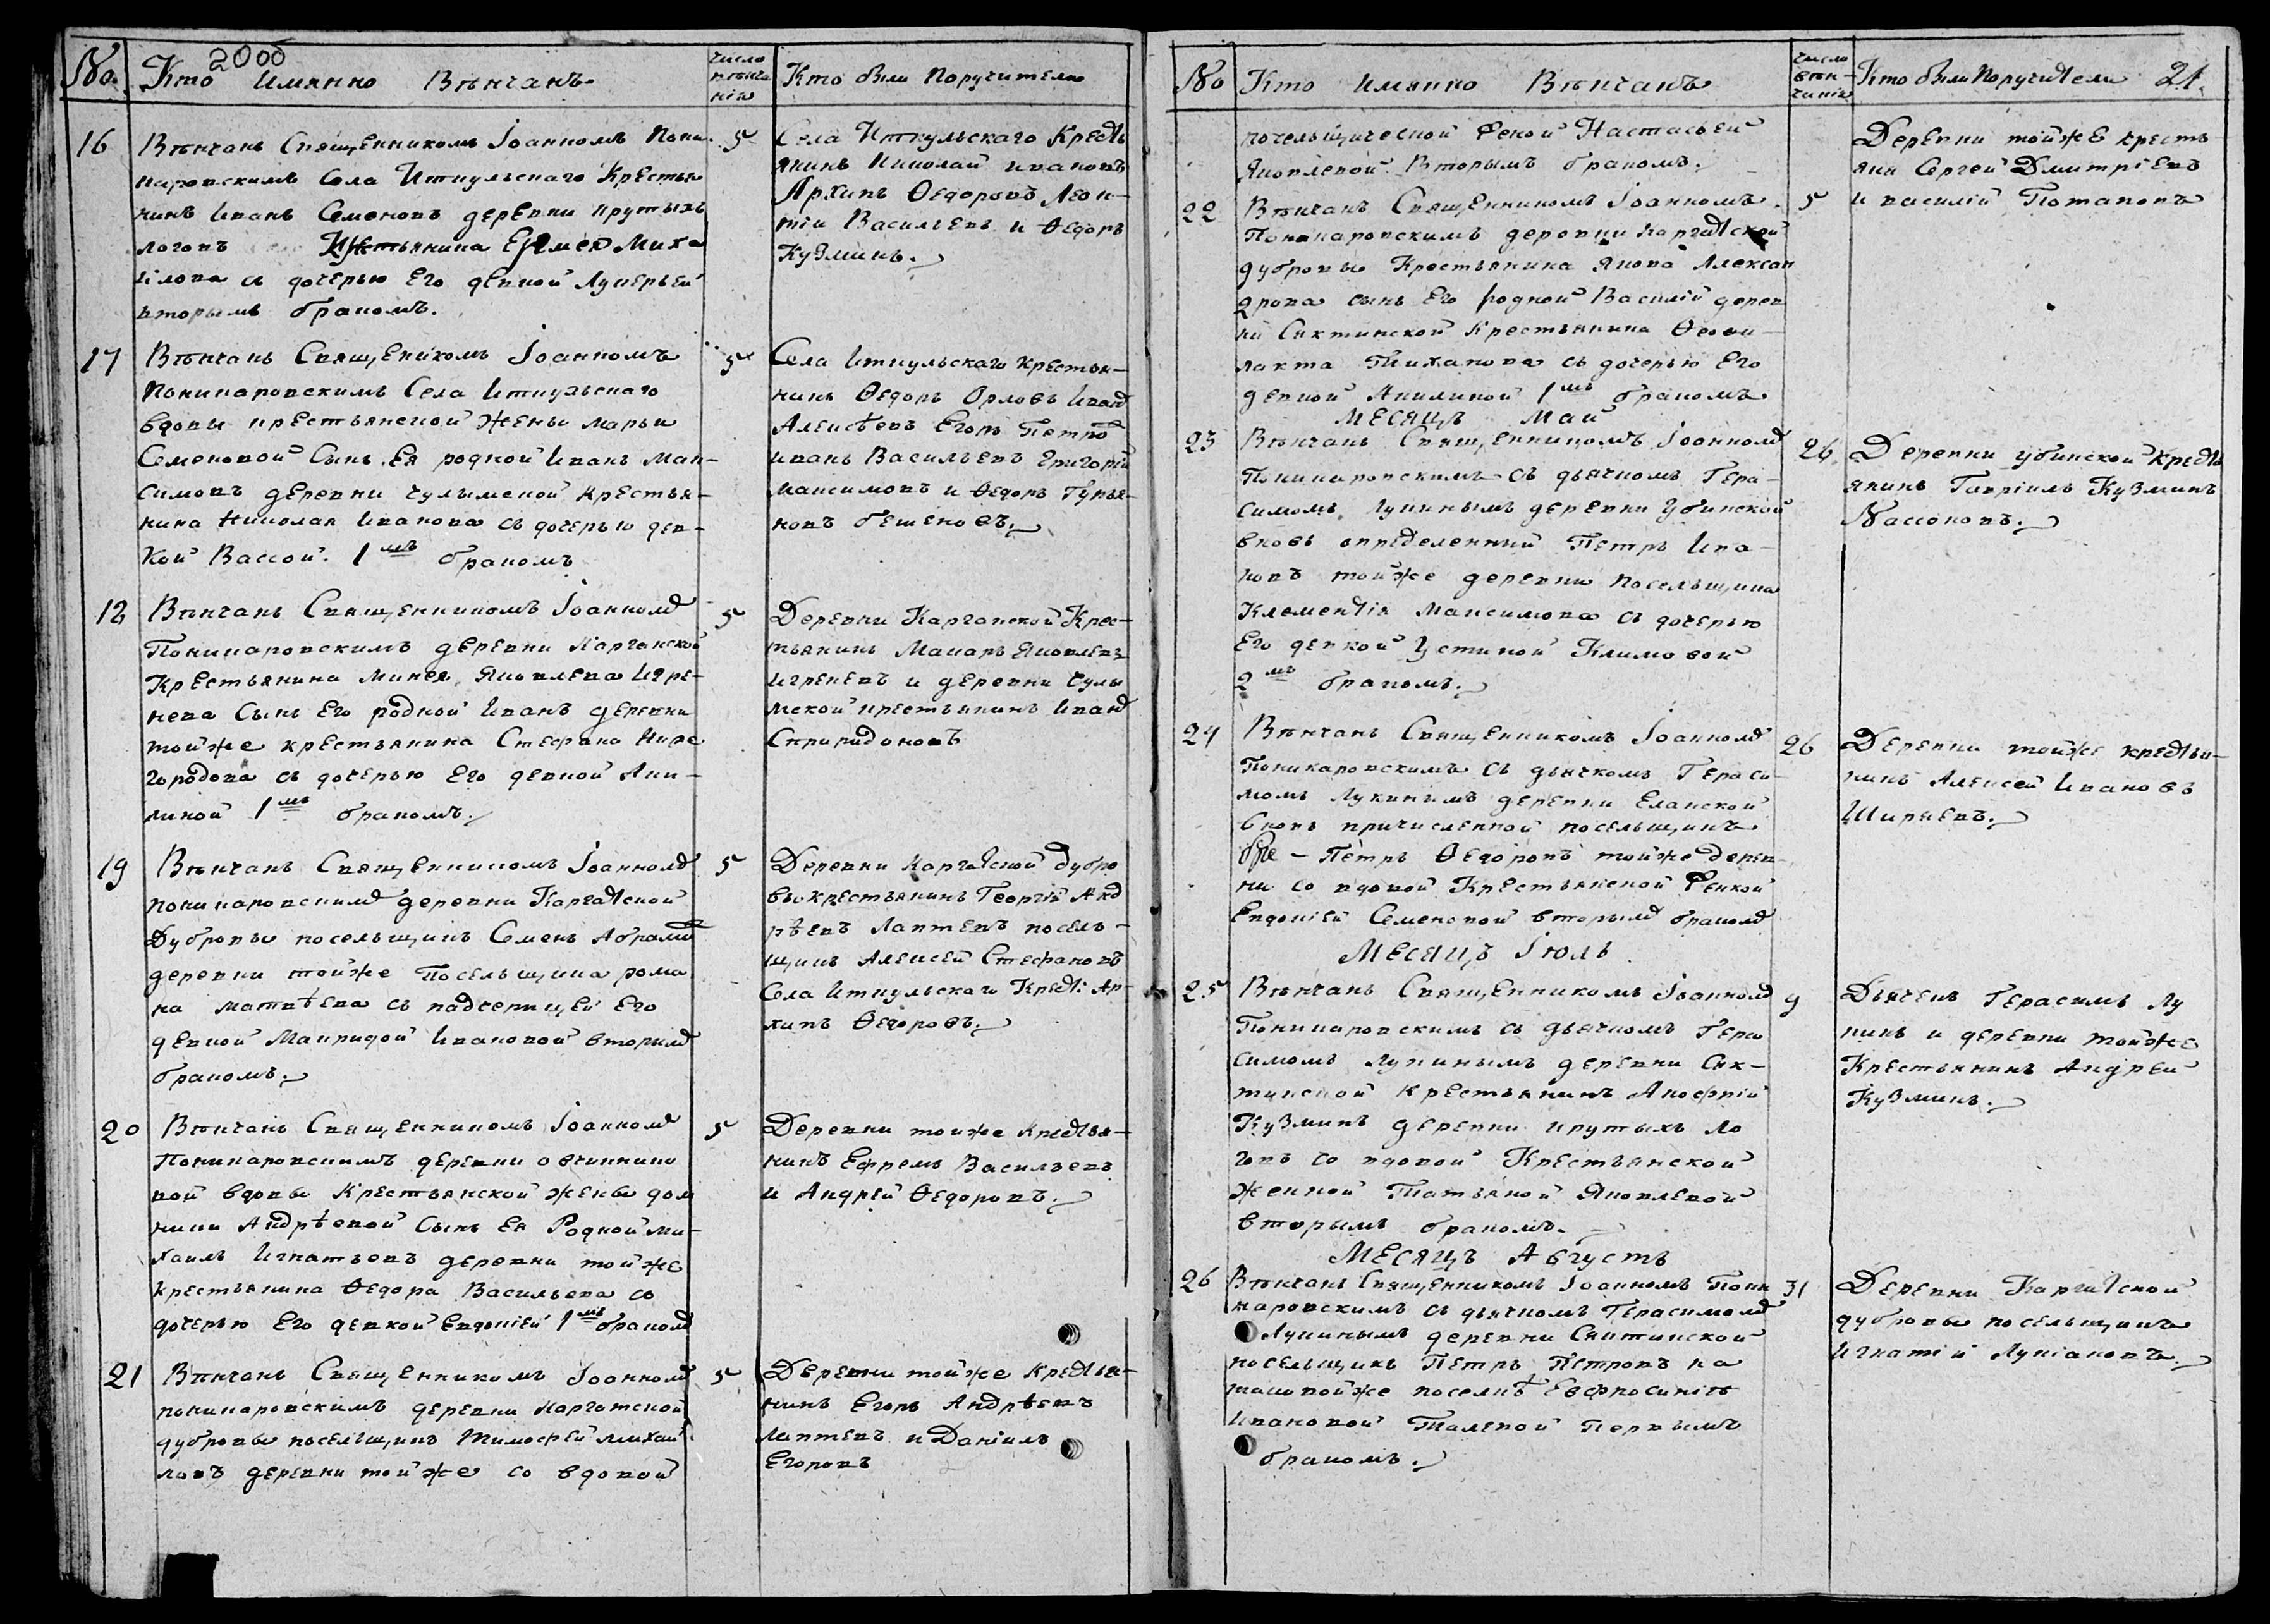 2000
No.
Кто имянно Вѣнчанъ
число
вѣнча
нія
Кто были Поручители
16
Вѣнчанъ Священникомъ Іоанномъ Пони
каровскимъ Села Иткульскаго Крестья
нинъ Иванъ Семеновъ деревни крутыхъ
логовъ Крестьянина Ермея Миха
илова съ дочерью Его девкой Лукерьей
вторымъ бракомъ.
5
Села Иткульскаго Кресть
янинъ Николай ивановъ
Архипъ Ѳедоровъ Леон-
тіи Васильевъ и Ѳедоръ
Кузминъ.
17
Вѣнчанъ Священикомъ Іоанномъ
Поникаровскимъ Села Иткульскаго
вдовы крестьянской жены марьи
Семеновой Сынъ Ея родной Иванъ Мак-
симовъ деревни чулымской крестья-
нина Николая Иванова съ дочерью дев-
кой Вассой. 1мъ бракомъ
5
Села Иткульскаго крестья-
нинъ Ѳедоръ Орловъ Иванъ
Алексѣевъ Егоръ Петровъ
иванъ Васильевъ Григорій
максимовъ и Ѳедоръ Гурья-
новъ бешеновъ.
18
Вѣнчанъ Священникомъ Іоанномъ
Поникаровскимъ деревни Карганской
Крестьянина Минея Яковлева Игре-
нева Сынъ Его родной Иванъ деревни
тойже крестьянина Стефана Ниже
городова съ дочерью Его девкой Аку-
линой 1мъ бракомъ.
5
Деревни Карганской Крес-
тьянинъ Макаръ Яковлевъ
Игреневъ и деревни чулы
мской крестьянинъ Иванъ
Спиридоновъ
19
Вѣнчанъ Священникомъ Іоанномъ
поникаровскимъ деревни Каргатской
Дубровы посельщикъ Семенъ Абрамовъ
деревни тойже Посельщика рома
на матвѣева съ падчерицей Его
девкой Макридой Ивановой вторымъ
бракомъ.
5
Деревни Каргатской дубро
вы крестьянинъ Георгій Анд
рѣевъ Лаптевъ посель-
щикъ Алексей Стефановъ
Села Иткульскаго Крест: Ар-
хипъ Ѳедоровъ.
20
Вѣнчанъ Священникомъ Іоанномъ
Поникаровскимъ деревни овчинико
вой вдовы Крестьянской жены дом
ники Андрѣевой Сынъ Ея Родной ми-
хаилъ Игнатьевъ деревни тойже
крестьянина Ѳедора Васильева со
дочерью Его девкой Евдокіей 1мъ бракомъ
5
Деревни тойже крестья-
нинъ Ефремъ Васильевъ
и Андрей Ѳедоровъ.
21
Вѣнчанъ Священникомъ Іоанномъ
поникаровскимъ деревни Каргатской
дубровы посельщикъ Тимофей михай
ловъ деревни тойже со вдовой
5
Деревни тойже крестья-
нинъ Егоръ Андрѣевъ
Лаптевъ и Даніилъ
Егоровъ
No
Кто имянно Вѣнчанъ
число
вѣн-
чанія
Кто были Поручители
21.
посельщической женой Настасьей
Яковлевой. Вторымъ бракомъ.
Деревни тойже кресть
янин Сергей Дмитріевъ
и василій Потаповъ
22
Вѣнчанъ Священникомъ Іоанномъ
Поникаровскимъ деревни каргатской
дубровы Крестьянина Якова Алексан
дрова сынъ Его родной Василій дерев
ни Сектинской Крестьянина Ѳеофи-
лакта Тиханова съ дочерью Его
девкой Акилиной 1мъ бракомъ.
5
МЕСЯЦЪ Май
23
Вѣнчанъ Священникомъ Іоанномъ
Поникаровскимъ съ дьячкомъ Гера-
симомъ Лукинымъ деревни Убинской
вновь определенный Петръ Ива-
новъ тойже деревни посельщика
Клементія Максимова съ дочерью
Его девкой Устиной Климовой
2мъ бракомъ.
26.
Деревни убинской кресть
янинъ Гавріилъ Кузминъ
Нассоновъ.
24
Вѣнчанъ Священникомъ Іоанномъ
Поникаровскимъ съ дьячкомъ Гераси-
момъ Лукинымъ деревни Еланской
вновь причисленной посельщикъ
Петръ Ѳедоровъ тойже дерев-
ни со вдовой Крестьянской Женкой
Евдокіей Семеновой вторымъ бракомъ
26
Деревни тойже крестья-
нинъ Алексей Ивановъ
Ширяевъ.
МЕСЯЦЪ Іюль
25
Вѣнчанъ Священникомъ Іоанномъ
Поникаровскимъ съ дьячкомъ Гера
симомъ Лукинымъ деревни Сек-
тинской крестьянинъ
Кузминъ деревни крутыхъ ло
говъ со вдовой Крестьянской
женкой Татьяной Яковлевой
вторымъ бракомъ.
9
Дьячекъ Герасимъ Лу
кинъ и деревни тойже
Крестьянинъ Андрей
Кузминъ.
МЕСЯЦЪ Августъ
26
Вѣнчанъ Священникомъ Іоанномъ Пони
каровскимъ съ дьячкомъ Герасимомъ
Лукинымъ деревни Сектинской
посельщикъ Петръ Петровъ на
таковойже поселкѣ Евфросиніѣ
Ивановой Талевой Первымъ
бракомъ.
31
Деревни Каргатской
дубровы посельщикъ
Игнатій Лукіановъ.